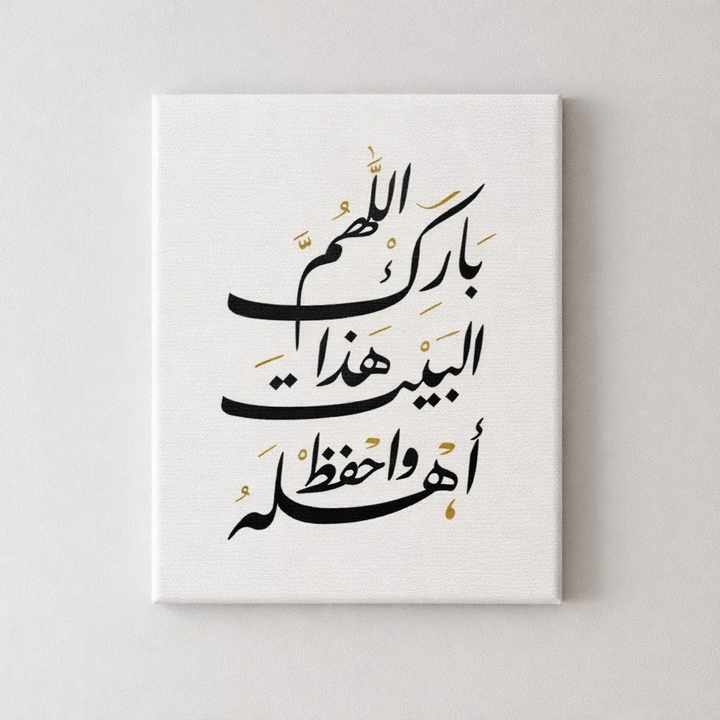 اللَّهُمَّ بَارِكْ
هَذَا البَيْتَ
وَاحْفَظْ أَهْلَهُ